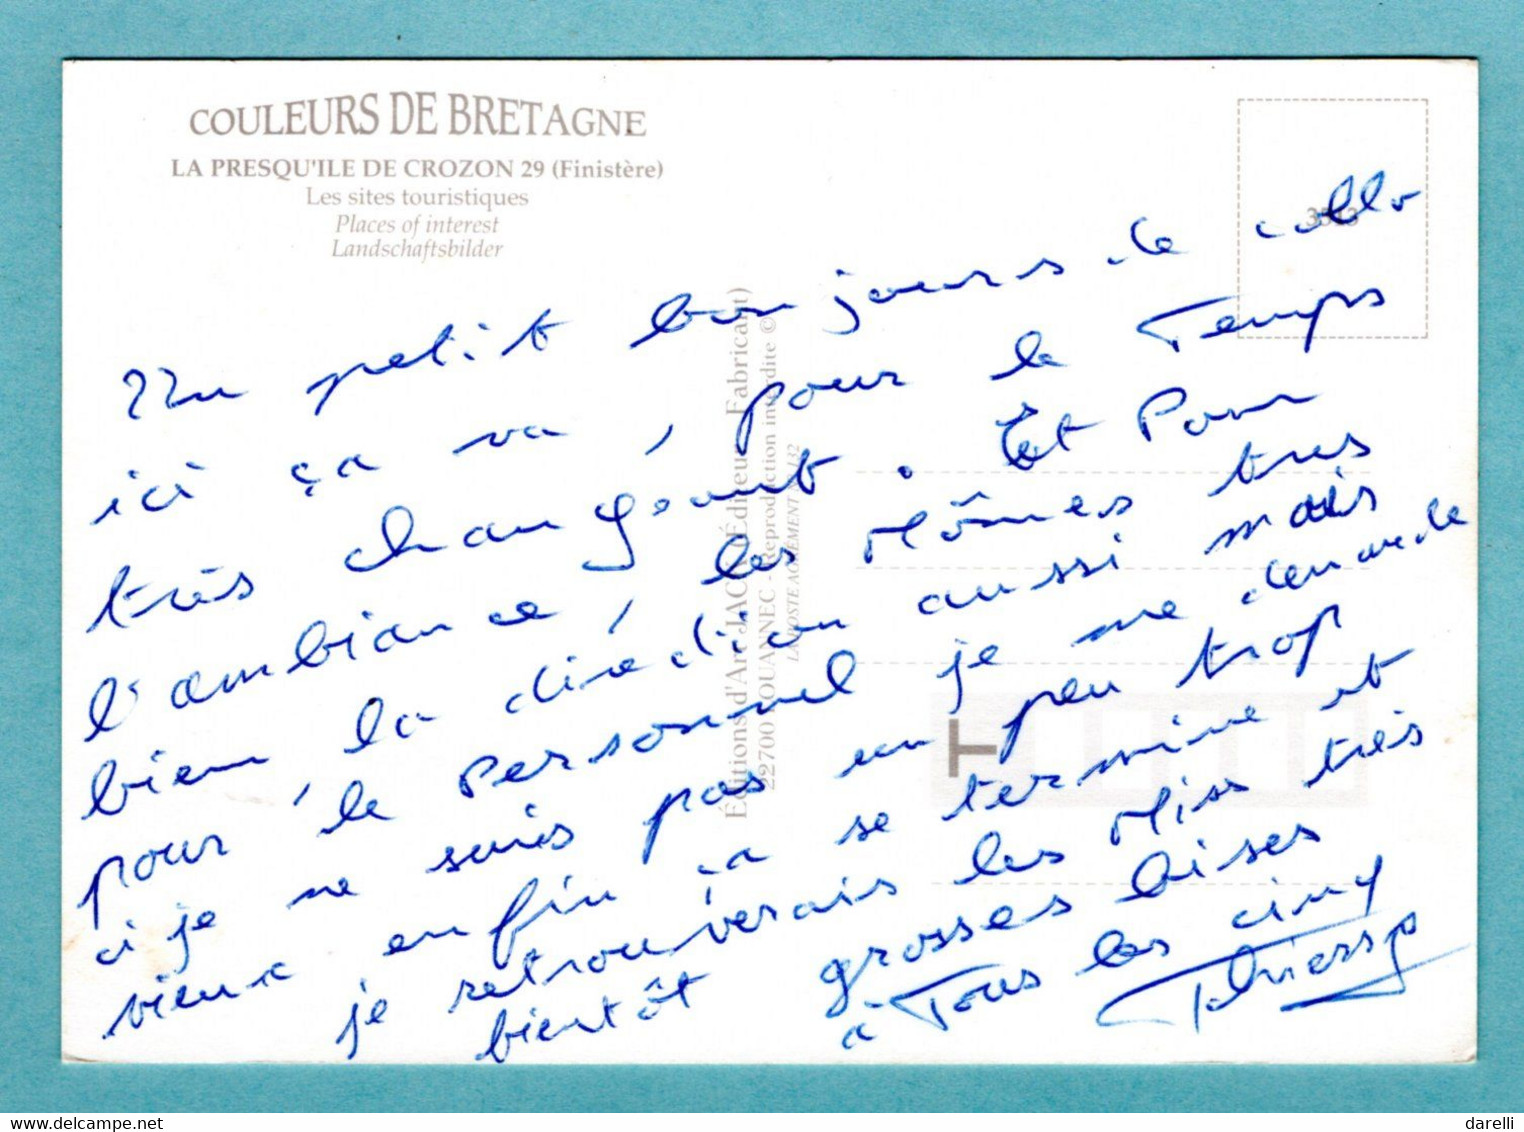 COULEURS DE BRETAGNE
LA PRESQU'ILE DE CROZON 29 (Finistère)
Les sites touristiques
Places of interest
Landschaftsbilder
Un petit bonjours de collo
ici ça va, pour le Temps
très changeant. Et Pour
l'ambiance, les Mômes tres
bien, la diréction aussi mais
pour, le Personnel je me demande
ci je ne suis pas un peu trop
vieux enfin ça se termine et
je retrouverais les Miss très
bientôt grosses bises
a Tous les cinq
Thierry
Éditions d'Art JACK (Éditeur - Fabricant)
22700 LOUANNEC - Reproduction interdite ©
LA POSTE AGRÉMENT N° 132
darelli